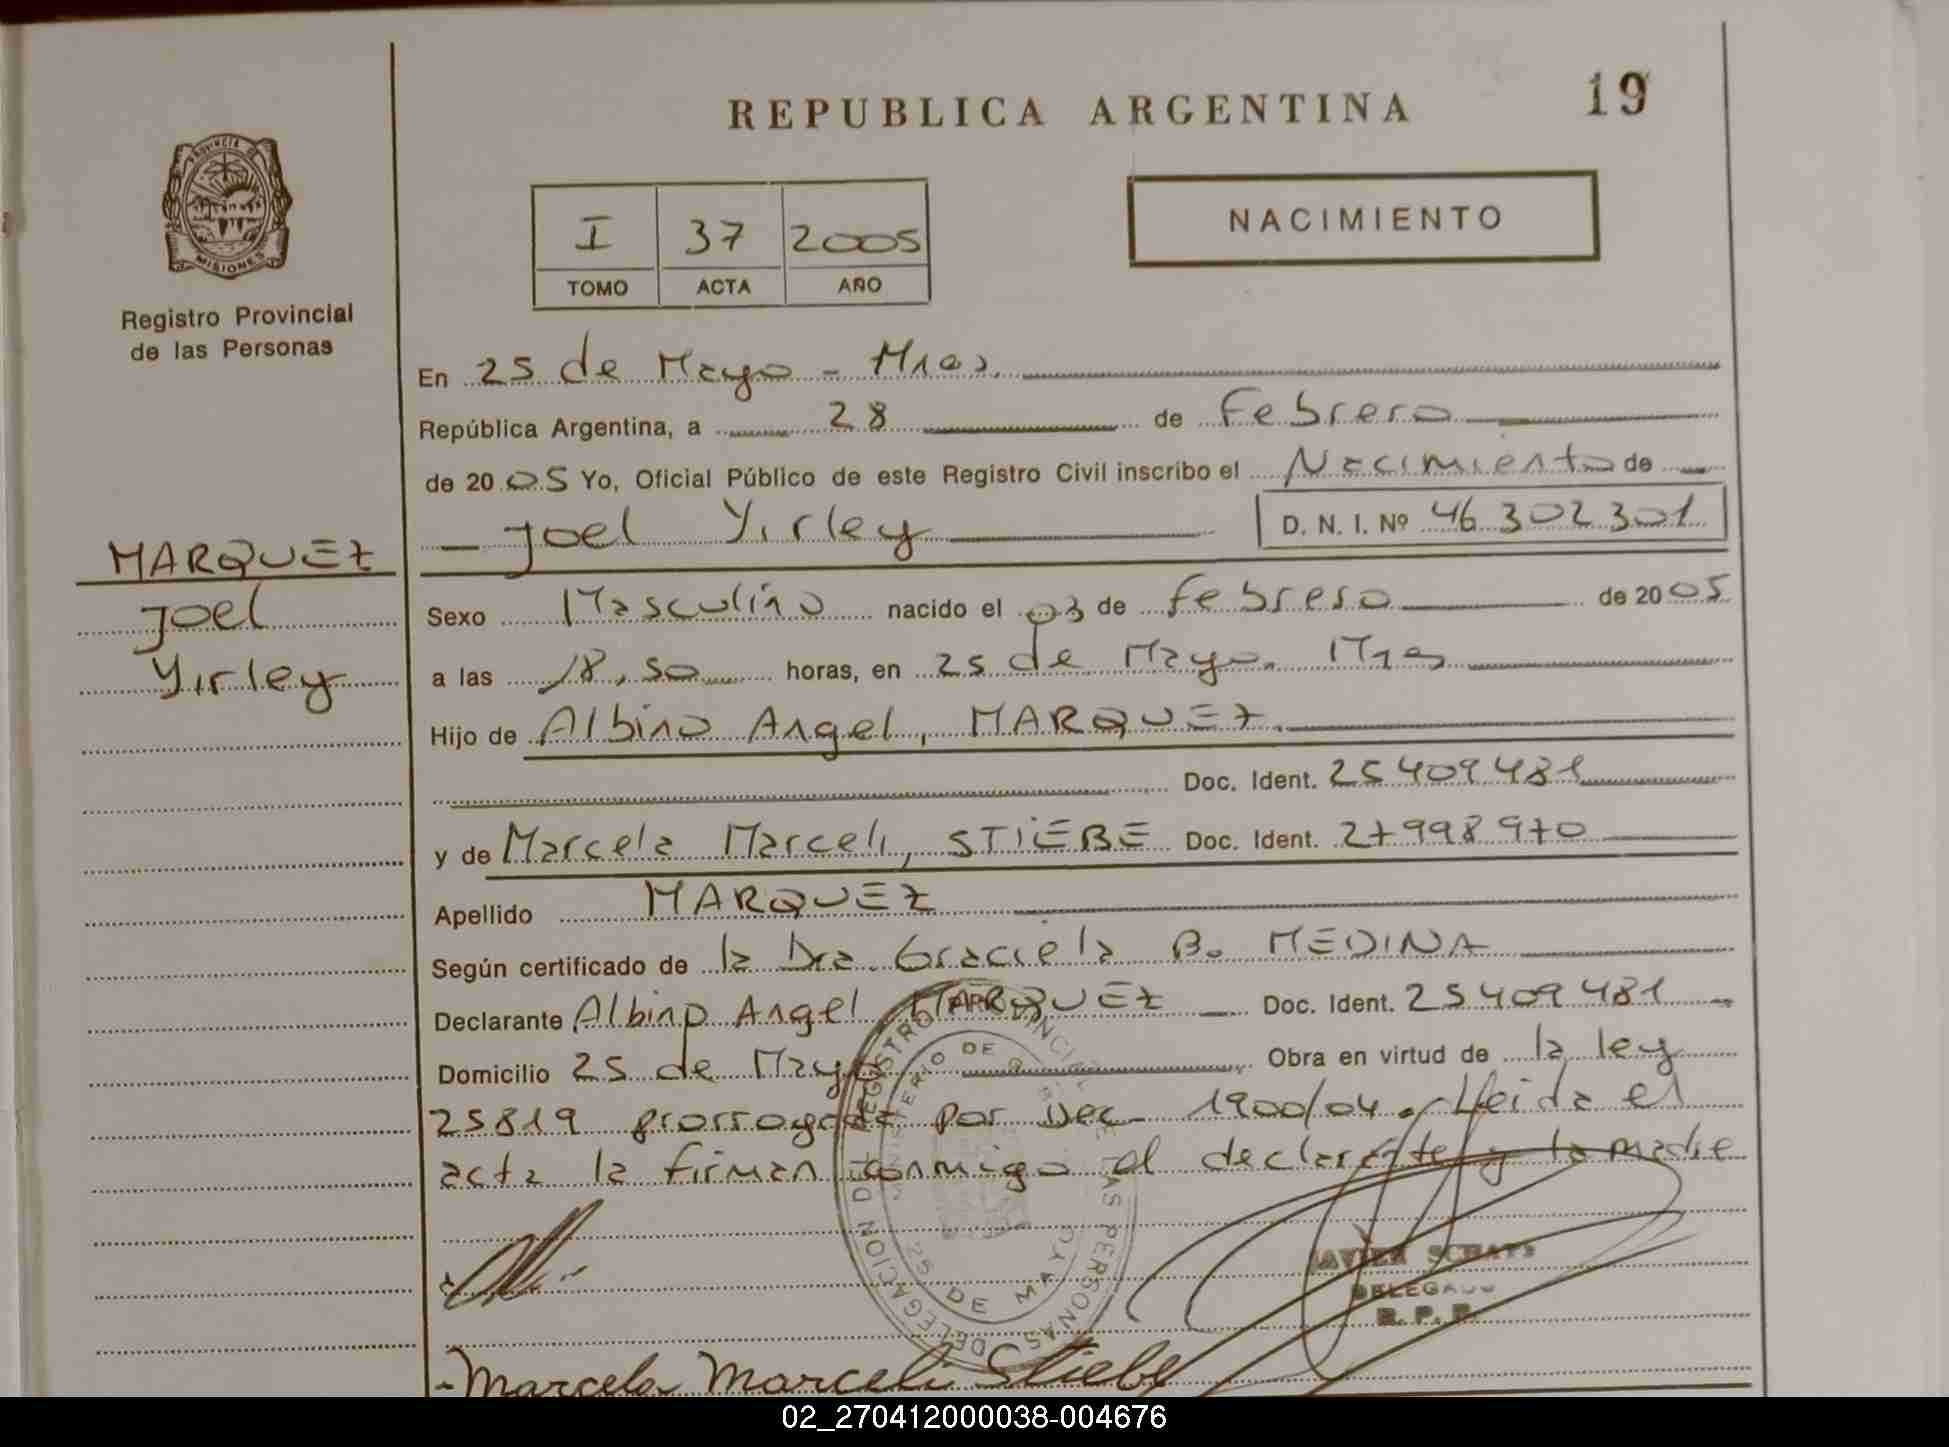 REPUBLICA ARGENTINA
19
PROVINCIA DE
MISIONES
Registro Provincial
de las Personas
I 37 2005
TOMO ACTA AÑO
NACIMIENTO
En 25 de Mayo - Mnes.
República Argentina, a 28 de Febrero
de 2005 Yo, Oficial Público de este Registro Civil inscribo el Nacimiento de
Joel Yirley
D. N. I. Nº 46 302 301
MARQUEZ
Joel
Yirley
Sexo Masculino nacido el 03 de Febrero de 2005
a las 18,50 horas, en 25 de Mayo. Mnes
Hijo de Albino Angel, MARQUEZ.
Doc. Ident. 25409481
y de Marcela Marceli, STIEBE Doc. Ident. 27998970
Apellido MARQUEZ
Según certificado de la Dra. Graciela B. MEDINA
Declarante Albino Angel MARQUEZ Doc. Ident. 25409481
Domicilio 25 de Mayo Obra en virtud de la ley
25819 prorrogada por Dec. 1900/04. Lleida el
acta la firman conmigo el declarante y la madre
DELEGACION DEL REGISTRO PROVINCIAL DE LAS PERSONAS
MINISTERIO DE
25 DE MAYO
JAVIER
DELEGADO
R. P. P.
Marcela Marceli Stiebe
02_270412000038-004676